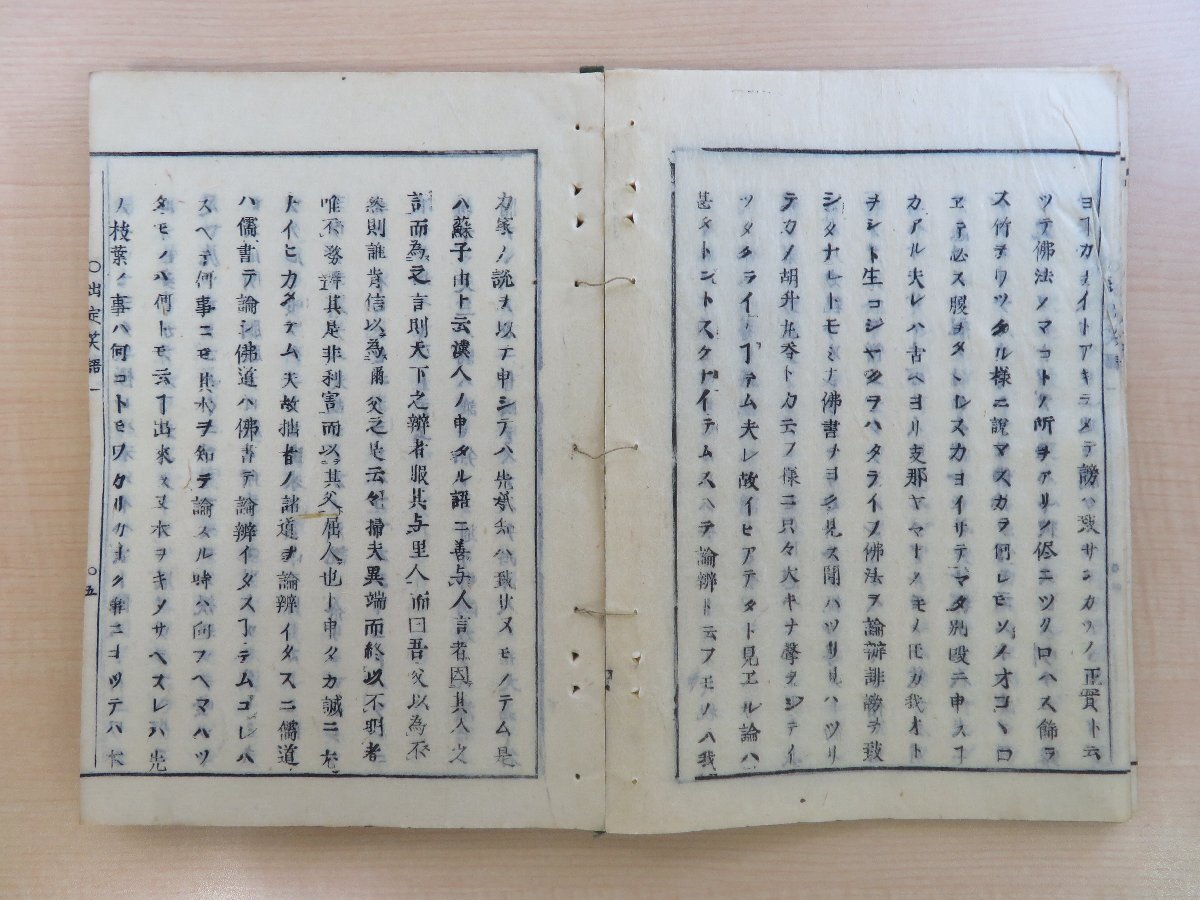 ヨフカヨイトアキラメテ謗ハ致サンカソノ正實ト云
ツテ佛法ノマコトノ所ヲアリノ侭ニツクロハス飾ラ
ス竹ヲワツタル様ニ説マスカラ何レモソノオコヽロ
ヱテ必ス腹ヲタヽレスカヨイサテマタ別段ニ申スヿ
カアル夫レハ古ヘヨリ支那ヤマトノモノモカ我オト
ヲシト生コシヤクヲハタライフ佛法ヲ論辯誹謗ヲ致
シタナレトモミナ佛書ヲヨク見ス聞ハツリ見ハツリ
テカノ胡升丸呑トカ云フ様ニ只々大キナ聲ヲシテイ
ツタクライノヿテム夫レ故イヒアテタト見ヱル論ハ
甚タトントスクナイテムスヘテ論辯ト云フモノハ我
カ家ノ説ヲ以テ申シテハ先祇知ハ致サヌモノテム是
ハ蘇子由ト云漢人ノ申タル語ニ善与人言者因其人之
言而為之言則天下之辯者服其与里人而曰吾父以為不
然則誰肯信以為爾父之是云々掃夫異端而終以不明者
唯不務辨其是非利害而以其父屈人也ト申タカ誠ニ左
トイヒカタテム夫故拙者ノ諸道ヲ論辨イタスニ儒道
ハ儒書テ論シ佛道ハ佛書テ論辨イタスヿテムコレハ
スヘテ何事ニモ其本ヲ知テ論スル時ハ向フヘマハツ
タモノハ何トモ云ヿ出來ヌ又本ヲキツサヘスレハ先
ノ枝葉ノ事ハ何コトモワケリカナク解ニコツテハ本
〇出定笑語一　〇五